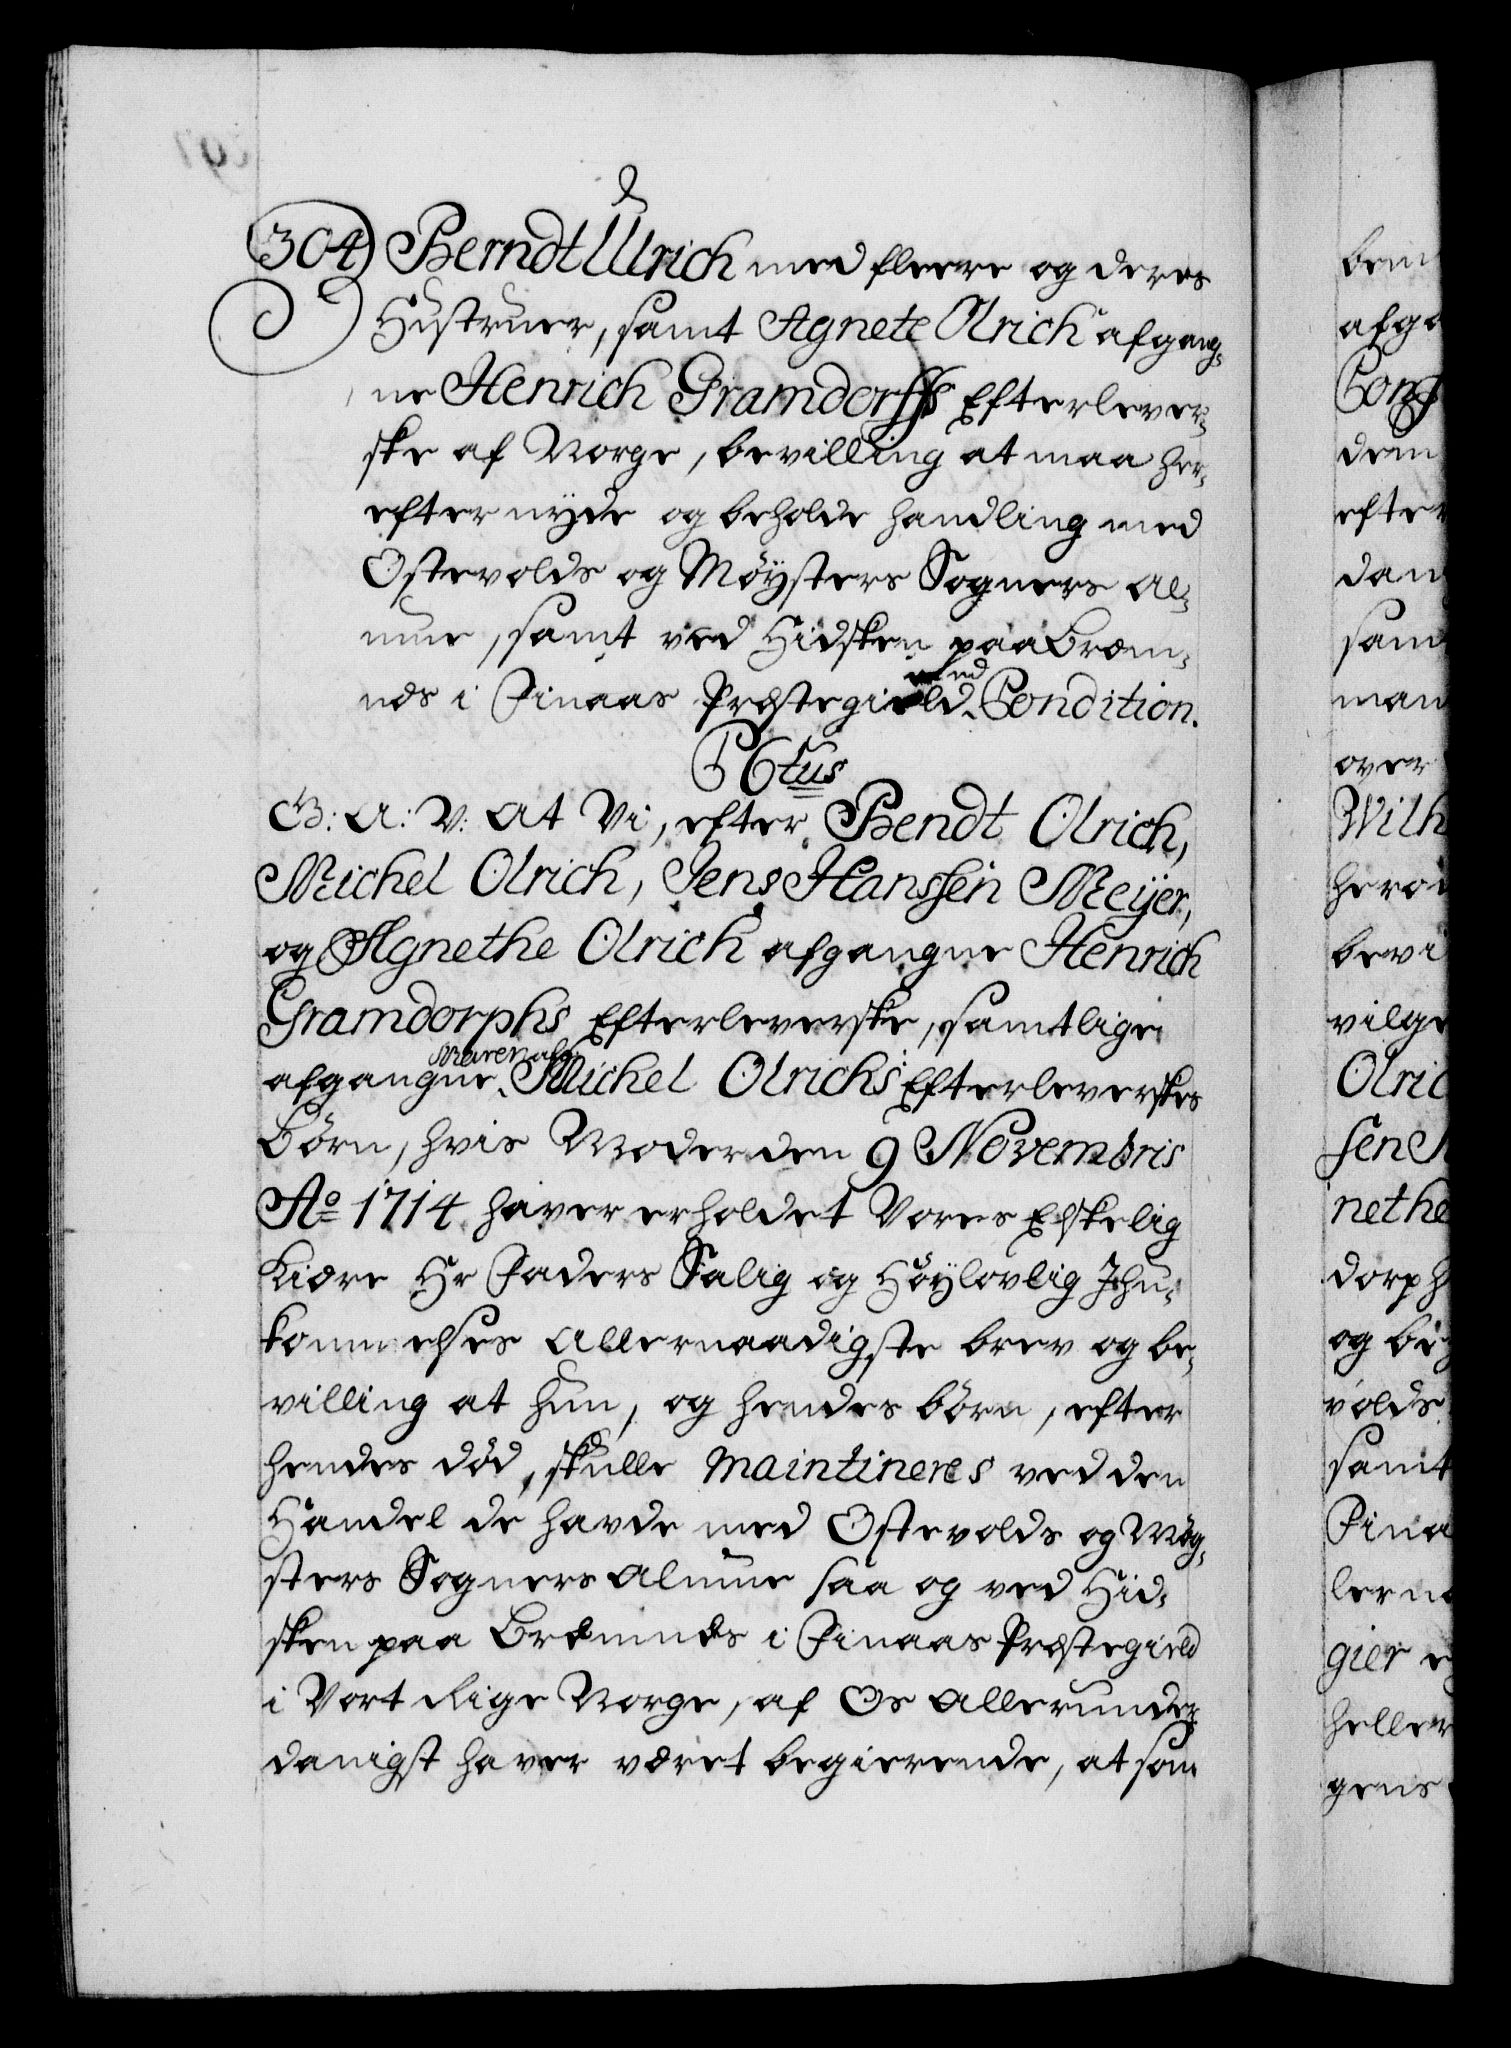 304) Berndt Ulrich med fleere og deres
Hustruer, samt Agnete Olrich afgang-
ne Henrich Gramdorffs Efterlever-
ske af Norge, bevilling at maa her-
efter nyde og beholde handling med
Ostevolds og Møysters Sogners Al-
mue, samt ved Hidsken paa Bræm-
næs i Finaas Præstegield med Condition.
C6tus
G: A: V: At Vi, efter Bendt Olrich,
Michel Olrich, Jens Hanssen Meyer,
og Agnethe Olrich afgangne Henrich
Gramdorphs Efterleverske, samtlige
Maren afg:
afgangne Michel Olrichs Efterleverskes
Børn, hvis Moder den 9 Novembris
Ao 1714 haver erholdet Vores Elskelig
Kiære Hr Faders Salig og Høylovlig Ihu-
kommelses Allernaadigste brev og be-
villing at hun, og hendes børn, efter
hendes død, skulle maintineres ved den
Handel de havde med Ostevolds og Møg-
sters Sogners Almue saa og ved Hid-
sken paa Bræmnæs i Finaas Præstegield
i Vort Rige Norge, af Os Allerunder-
danigst haver været begierende, at som